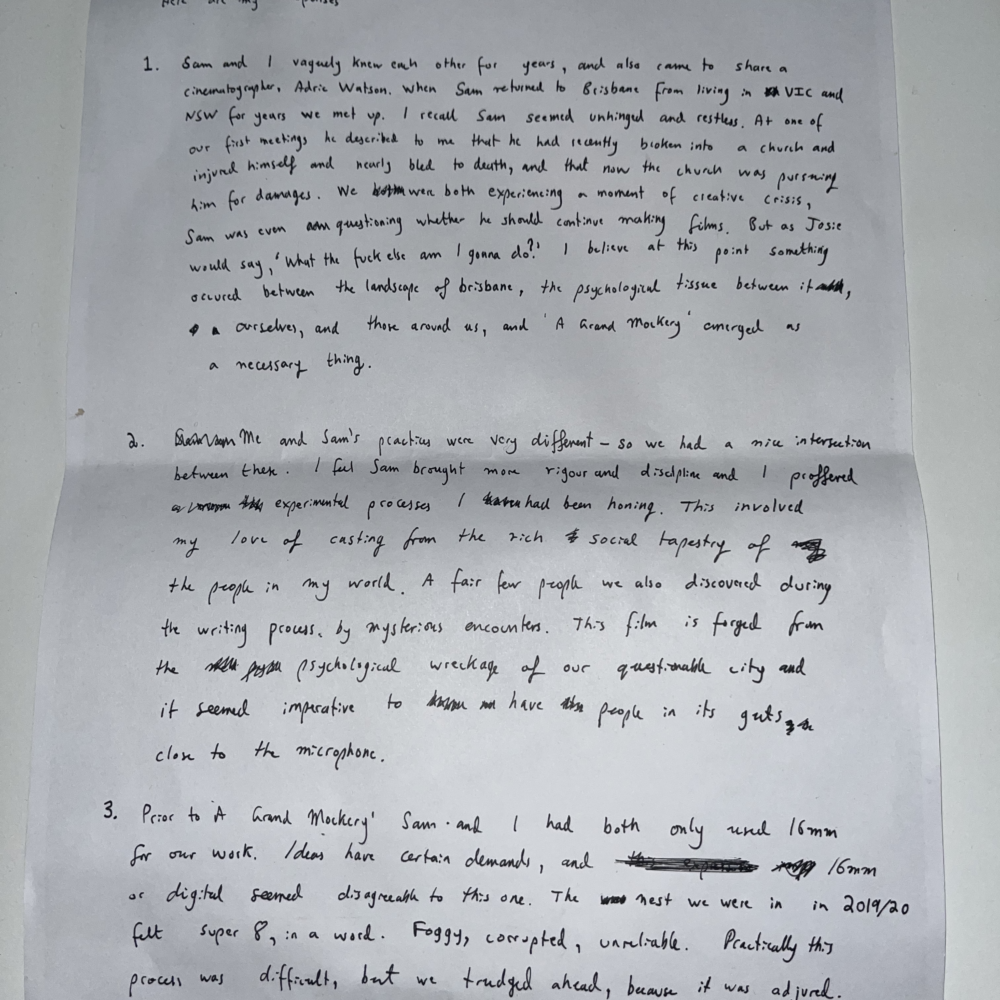 Here are my
1. Sam and I vaguely knew each other for years, and also came to share a
cinematographer, Adric Watson. When Sam returned to Brisbane from living in VIC and
NSW for years we met up. I recall Sam seemed unhinged and restless. At one of
our first meetings he described to me that he had recently broken into a church and
injured himself and nearly bled to death, and that now the church was pursuing
him for damages. We were both experiencing a moment of creative crisis,
Sam was even questioning whether he should continue making films. But as Josie
would say, 'What the fuck else am I gonna do?' I believe at this point something
occured between the landscape of brisbane, the psychological tissue between it,
ourselves, and those around us, and 'A Grand Mockery' emerged as
a necessary thing.
2. Me and Sam's practices were very different – so we had a nice intersection
between these. I feel Sam brought more rigour and discipline and I proffered
experimental processes I had been honing. This involved
my love of casting from the rich social tapestry of
the people in my world. A fair few people we also discovered during
the writing process, by mysterious encounters. This film is forged from
the psychological wreckage of our questionable city and
it seemed imperative to have people in its guts
close to the microphone.
3. Prior to 'A Grand Mockery' Sam and I had both only used 16mm
for our work. Ideas have certain demands, and 16mm
or digital seemed disagreeable to this one. The nest we were in in 2019/20
felt super 8, in a word. Foggy, corrupted, unreliable. Practically this
process was difficult, but we trudged ahead, because it was adjured.